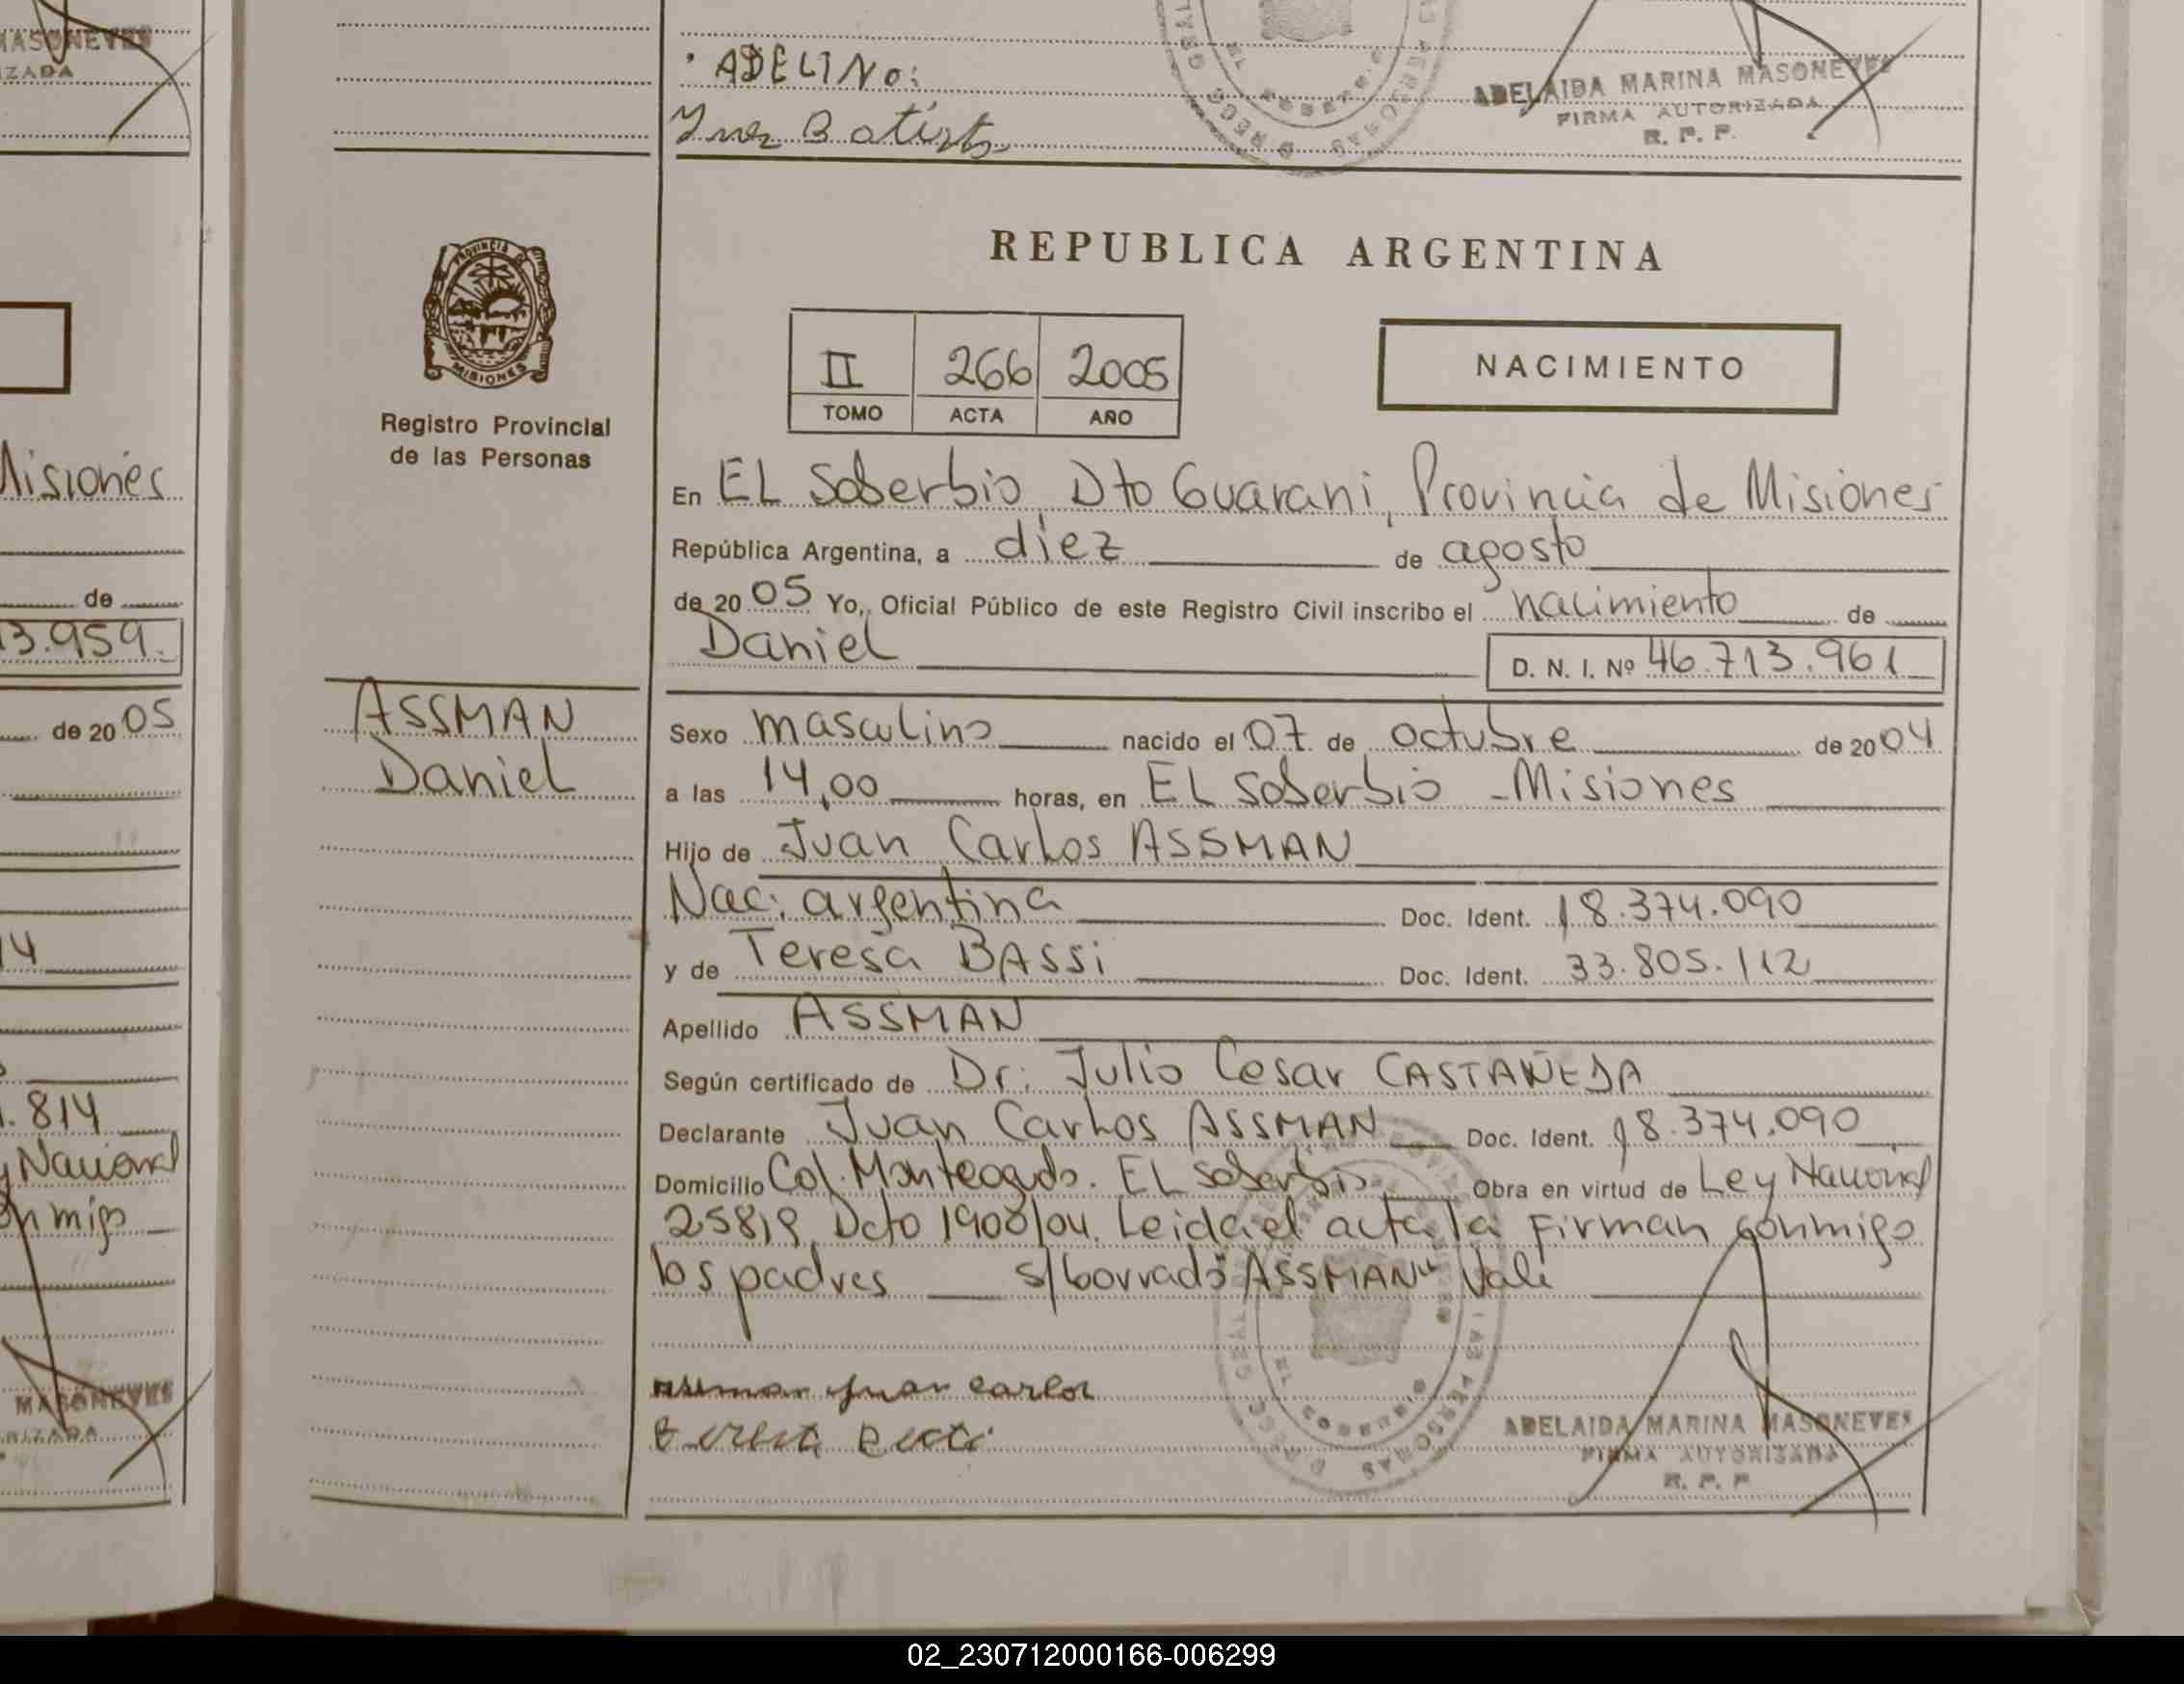 ADELINO:
Batista
ADELAIDA MARINA MASONEVES
FIRMA AUTORIZADA
R. P. P.
MASONEVES
IZADA
REPUBLICA ARGENTINA
PROVINCIA DE
MISIONES
Registro Provincial
de las Personas
II 266 2005
TOMO ACTA AÑO
NACIMIENTO
En EL Soberbio Dto Guarani, Provincia de Misiones
República Argentina, a diez de agosto
de 20 05 Yo, Oficial Público de este Registro Civil inscribo el nacimiento de
Daniel D. N. I. Nº 46.713.961
ASSMAN
Daniel
Sexo masculino nacido el 07 de octubre de 20 04
a las 14,00 horas, en EL Soberbio - Misiones
Hijo de Juan Carlos ASSMAN
Nac: argentina Doc. Ident. 18.374.090
y de Teresa BASSi Doc. Ident. 33.805.112
Apellido ASSMAN
Según certificado de Dr: Julio Cesar CASTAÑEDA
Declarante Juan Carlos ASSMAN Doc. Ident. 18.374.090
Domicilio Col. Monteagudo. EL Soberbio Obra en virtud de Ley Nacional
25819 Dcto 1908/04. Leida el acta la firman conmigo
los padres s/borrado "ASSMAN" Vale
Assman Juan Carlos
ADELAIDA MARINA MASONEVES
FIRMA AUTORIZADA
R. P. P
Misiones
de
3.959.
de 20 05
14
.814
y Nacional
onmigo
MASONEVES
RIZADA
02_230712000166-006299